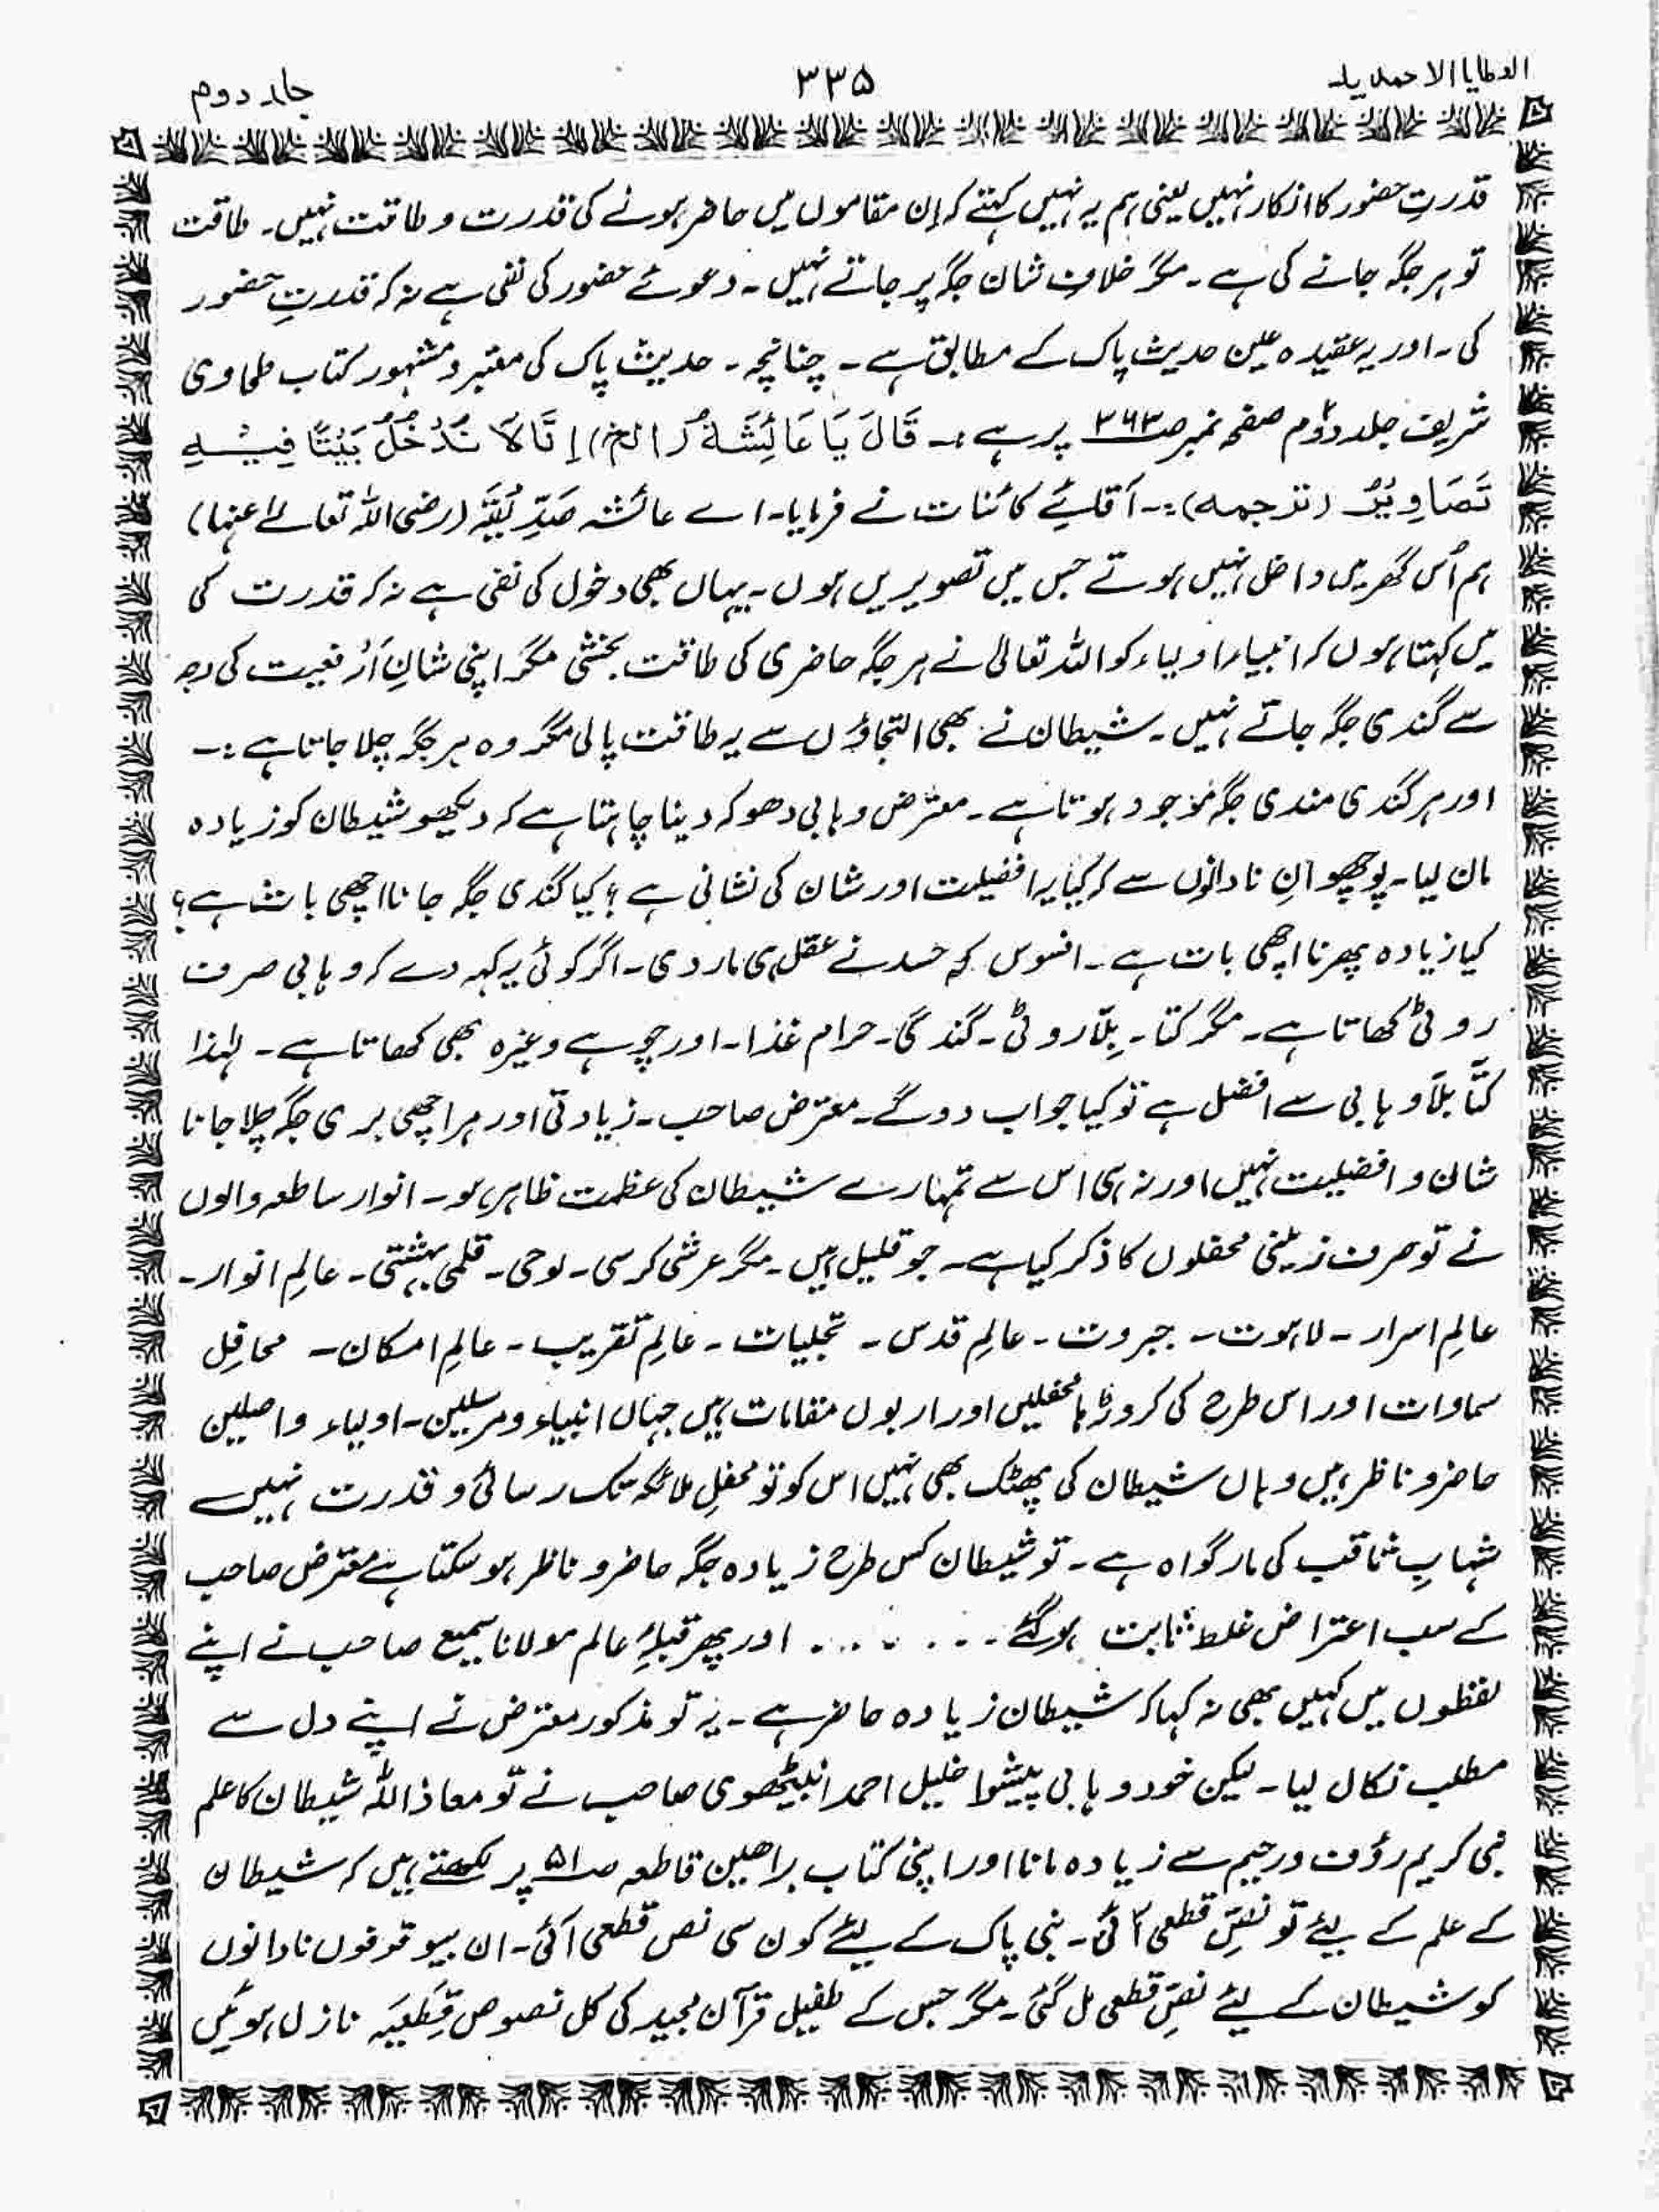 العطایا الاحمدیه
۳۳۵
جلد دوم
قدرتِ حضور کا انکار نہیں یعنی ہم یہ نہیں کہتے کہ اِن مقاموں میں حاضر ہونے کی قدرت و طاقت نہیں۔ طاقت
تو ہر جگہ جانے کی ہے۔ مگر خلافِ شان جگہ پر جاتے نہیں۔ دعوئے حضور کی نفی ہے نہ کہ قدرتِ حضور
کی۔ اور یہ عقیدہ عین حدیث پاک کے مطابق ہے۔ چنانچہ۔ حدیث پاک کی معتبر و مشہور کتاب طحاوی
شریف جلد دوم صفحہ نمبر صـ ۳۶۳ پر ہے :۔ قَالَ یَا عَائِشَةُ (الخ) اِنَّا لَا نَدْخُلُ بَیْتًا فِیْهِ
تَصَاوِیْرُ (ترجمہ) :۔ آقائے کائنات نے فرمایا۔ اے عائشہ صدِّیقہ (رضی اللہ تعالےٰ عنہا)
ہم اُس گھر میں داخل نہیں ہوتے جس میں تصویریں ہوں۔ یہاں بھی دخول کی نفی ہے نہ کہ قدرت کی
میں کہتا ہوں کہ انبیاء اولیاء کو اللہ تعالیٰ نے ہر جگہ حاضری کی طاقت بخشی مگر اپنی شانِ اَرْفعیت کی وجہ
سے گندی جگہ جاتے نہیں۔ شیطان نے بھی التجاؤں سے یہ طاقت پالی مگر وہ ہر جگہ چلا جاتا ہے :۔
اور ہر گندی مندی جگہ موجود ہوتا ہے۔ معترض وہابی دھوکہ دینا چاہتا ہے کہ دیکھو شیطان کو زیادہ
مان لیا۔ پوچھو اِن نادانوں سے کہ کیا یہ افضیلت اور شان کی نشانی ہے؟ کیا گندی جگہ جانا اچھی بات ہے؟
کیا زیادہ پھرنا اچھی بات ہے۔ افسوس کہ حسد نے عقل ہی مار دی۔ اگر کوئی یہ کہہ دے کہ وہابی صرف
روٹی کھاتا ہے۔ مگر کتا۔ بِلّا روٹی۔ گندگی۔ حرام غذا۔ اور چوہے وغیرہ بھی کھاتا ہے۔ لہٰذا
کتّا بلّا وہابی سے افضل ہے تو کیا جواب دو گے۔ معترض صاحب۔ زیادتی اور ہر اچھی بری جگہ چلا جانا
شان و افضیلیت نہیں اور نہ ہی اس سے تمہارے شیطان کی عظمت ظاہر ہو۔ انوار ساطعہ والوں
نے تو صرف زمینی محفلوں کا ذکر کیا ہے۔ جو قلیل ہیں۔ مگر عرشی کرسی۔ لوحی۔ قلمی بہشتی۔ عالمِ انوار۔
عالمِ اسرار۔ لاہوت۔ جبروت۔ عالمِ قدس۔ تجلیات۔ عالمِ تقریب۔ عالمِ امکان۔ محافِلِ
سماوات اور اس طرح کی کروڑہا محفلیں اور اربوں مقامات ہیں جہاں انبیاء و مرسلین۔ اولیاء واصلین
حاضر و ناظر ہیں وہاں شیطان کی پھٹک بھی نہیں اس کو تو محفلِ ملائکہ تک رسائی و قدرت نہیں
شہابِ ثاقب کی مار گواہ ہے۔ تو شیطان کس طرح زیادہ جگہ حاضر و ناظر ہو سکتا ہے معترض صاحب
کے سب اعتراض غلط ثابت ہو گئے۔ . . . . . . اور پھر قبلۂ عالم مولانا سمیع صاحب نے اپنے
لفظوں میں کہیں بھی نہ کہا کہ شیطان زیادہ حاضر ہے۔ یہ تو مذکور معترض نے اپنے دل سے
مطلب نکال لیا۔ لیکن خود وہابی پیشوا خلیل احمد انبیٹھوی صاحب نے تو معاذ اللہ شیطان کا علم
نبی کریم رؤف و رحیم سے زیادہ مانا اور اپنی کتاب براھین قاطعہ صـ ۵۱ پر لکھتے ہیں کہ شیطان
کے علم کے لیئے تو نصِّ قطعی آئی۔ نبی پاک کے لیئے کون سی نص قطعی آئی۔ ان بیوقوفوں نادانوں
کو شیطان کے لیئے نصِّ قطعی مل گئی۔ مگر جس کے طفیل قرآن مجید کی کل نصوص قَطعیَہ نازل ہوئیں